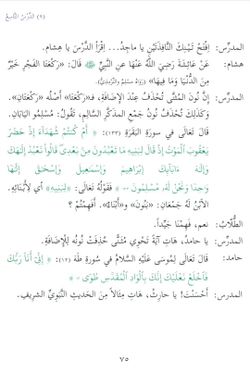 (٩) الدَّرْسُ التَّاسِعُ
المدرّس: اِفْتَحْ تَيْنِكَ النَّافِذَتَيْنِ يا ماجدُ... اِقْرَأْ الدَّرْسَ يا هِشامُ.
هشام: عَنْ عَائِشَةَ رَضِيَ اللَّهُ عَنْهَا عَنِ النَّبِيِّ ﷺ قَالَ: «رَكْعَتَا الفَجْرِ خَيْرٌ
مِنَ الدُّنْيَا وَمَا فِيهَا» (رَوَاهُ مسلم والترمذي).
المدرّس: إِنَّ نُونَ المُثَنَّى تُحْذَفُ عِنْدَ الإِضَافَةِ، فـ«رَكْعَتَا» أَصْلُهُ: رَكْعَتَانِ.
وَكَذٰلِكَ تُحْذَفُ نُونُ جَمْعِ المذكَّرِ السالمِ، تَقُولُ: مُسْلِمُو اليَابَانِ.
قَالَ تَعَالَى في سورةِ البَقَرَةِ (١٣٣): ﴿ أَمْ كُنتُمْ شُهَدَآءَ إِذْ حَضَرَ
يَعْقُوبَ ٱلْمَوْتُ إِذْ قَالَ لِبَنِيهِ مَا تَعْبُدُونَ مِنۢ بَعْدِى قَالُوا۟ نَعْبُدُ إِلَٰهَكَ
وَإِلَٰهَ ءَابَآئِكَ إِبْرَٰهِـۧمَ وَإِسْمَٰعِيلَ وَإِسْحَٰقَ إِلَٰهًا
وَٰحِدًا وَنَحْنُ لَهُۥ مُسْلِمُونَ ﴾ فقَوْلُهُ تَعَالَى: ﴿لِبَنِيهِ﴾ أي لِأَبْنَائِهِ.
الابْنُ لَهُ جَمْعَانِ: «بَنُونَ» و«أَبْنَاءٌ». أَفَهِمْتُمْ ؟
الطُّلَّابُ: نعم، فَهِمْنَا جَيِّداً.
المدرس: يا حامدُ، هَاتِ آيَةً تَحْوِي مُثَنًّى حُذِفَتْ نُونُهُ لِلإِضَافَةِ.
حامد: قَالَ تَعَالَى لِمُوسَى عَلَيْهِ السَّلامُ في سُورَةِ طٰهَ (١٢): ﴿ إِنِّىٓ أَنَا۠ رَبُّكَ
فَٱخْلَعْ نَعْلَيْكَ إِنَّكَ بِٱلْوَادِ ٱلْمُقَدَّسِ طُوًى ﴾
المدرس: أَحْسَنْتَ! يا حارثُ، هَاتِ مِثَالاً مِنَ الحَدِيثِ النَّبَوِيِّ الشريفِ.
٧٥